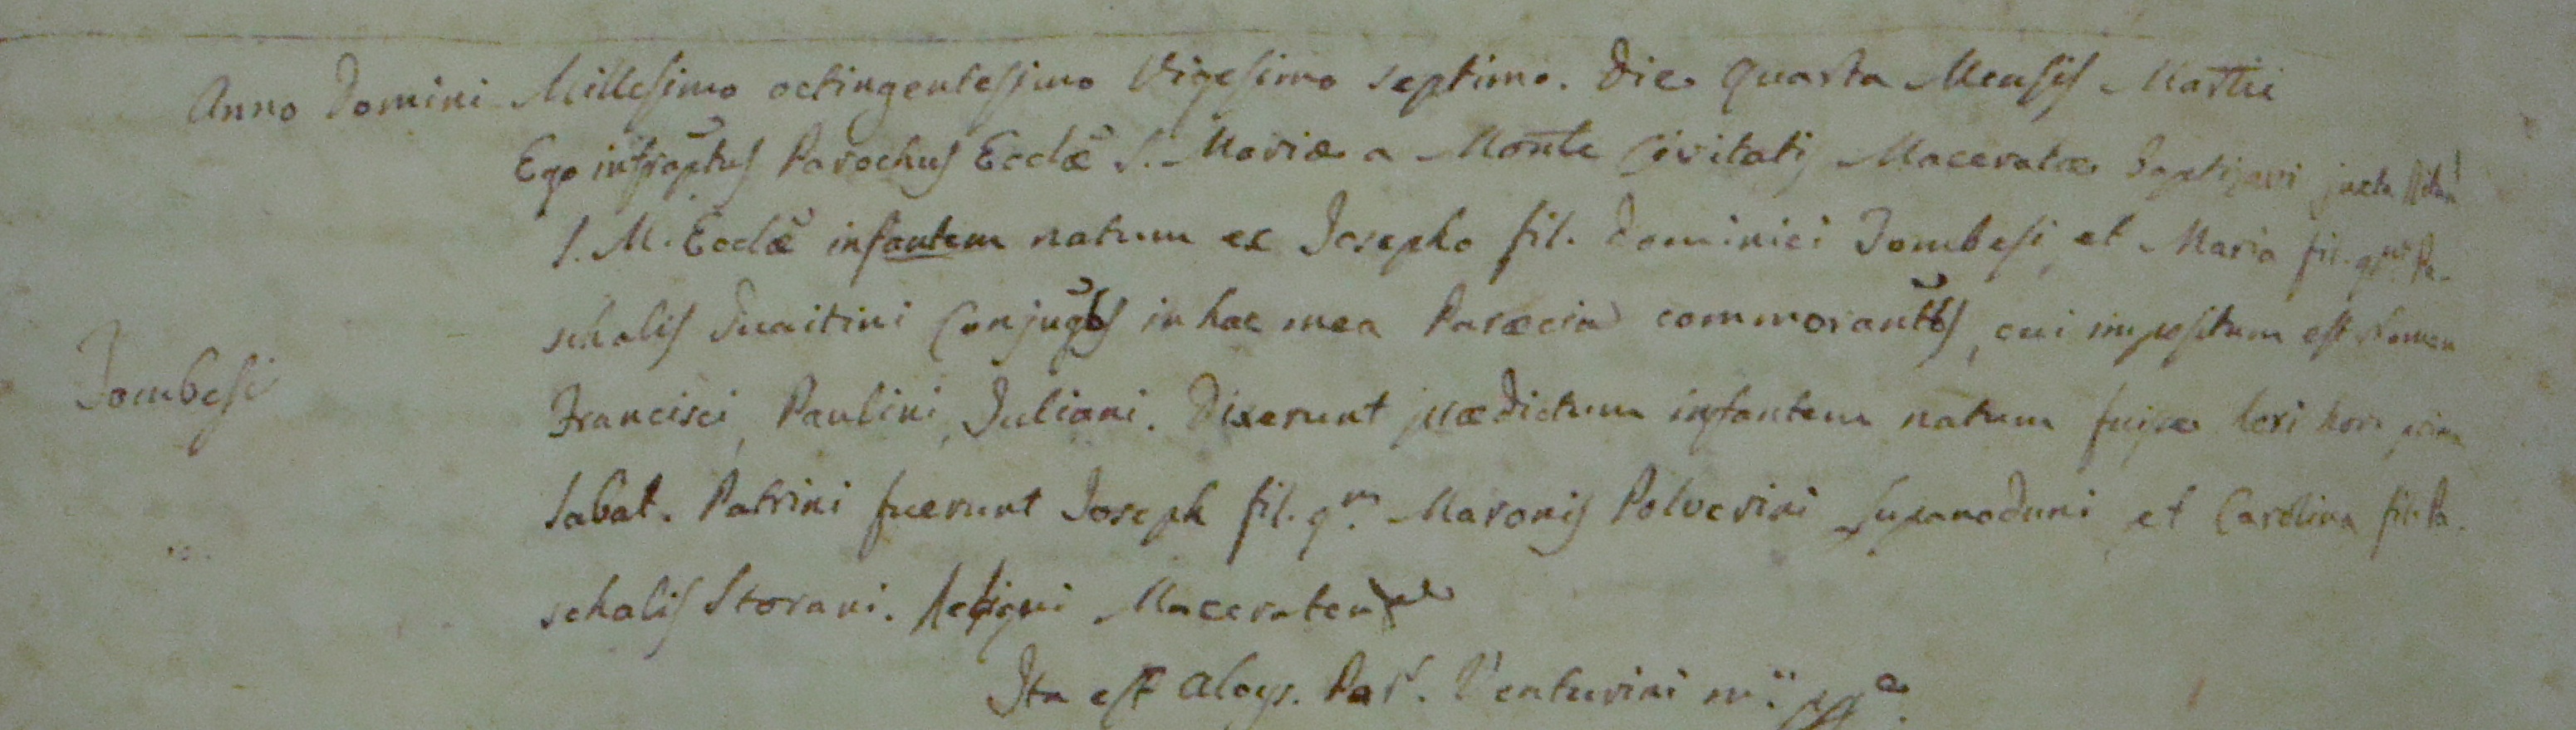 Anno Domini Millesimo octingentesimo Vigesimo septimo. Die quarta Mensis Martii
Ego infrãptus Parochus Ecclæ̃ S. Mariæ a Monte Civitatis Maceratæ baptizavi juxta Ritũ
S. M. Ecclæ̃ infantem natum ex Josepho fil. Dominici Tombesi, et Maria fil. qm. Pa-
schalis Conjugb̃s in hac mea Paræcia commorantb̃s, cui impositum est Nomen
Tombesi
Francisci, Paulini, Juliani. Dixerunt prædictum infantem natum fuisse heri hora
Sabat. Patrini fuerunt Joseph fil. qm. Maronis Polverini et Carolina fil. Pa-
schalis Storani. Maceraten
Ita est Aloys. Par. Venturini m.